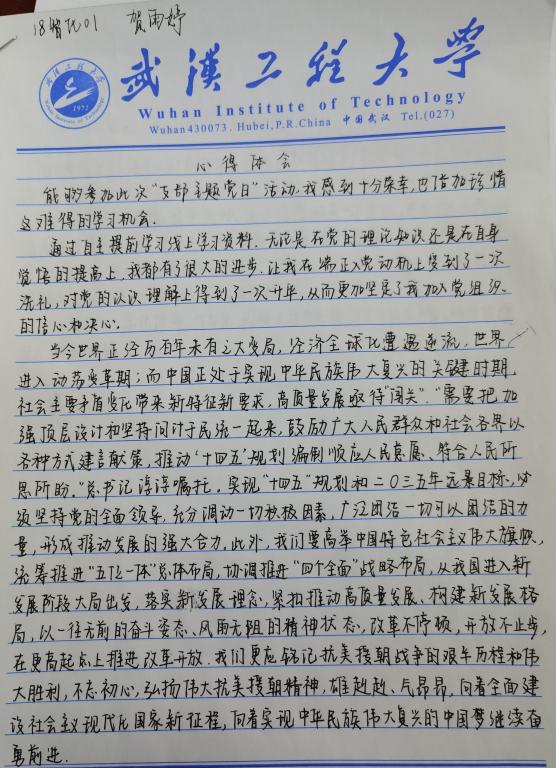 18智化01 贺雨婷
武汉工程大学
Wuhan Institute of Technology
Wuhan430073. Hubei, P.R.China 中国武汉 Tel.(027)
武汉工程大学
1972
Wuhan Institute of Technology
心得体会
能够参加此次“支部主题党日”活动,我感到十分荣幸,也倍加珍惜
这难得的学习机会.
通过自主提前学习线上学习资料.无论是在党的理论知识还是在自身
觉悟的提高上,我都有了很大的进步.让我在端正入党动机上受到了一次
洗礼,对党的认识理解上得到了一次升华,从而更加坚定了我加入党组织.
的信心和决心.
当今世界正经历百年未有之大变局,经济全球化遭遇逆流,世界
进入动荡变革期;而中国正处于实现中华民族伟大复兴的关键时期.
社会主要矛盾变化带来新特征新要求,高质量发展亟待“闯关”.“需要把加
强顶层设计和坚持问计于民统一起来,鼓励广大人民群众和社会各界以
各种方式建言献策,推动‘十四五’规划编制顺应人民意愿、符合人民所
思所盼.”总书记谆谆嘱托.实现“十四五”规划和二〇三五年远景目标,必
须坚持党的全面领导,充分调动一切积极因素,广泛团结一切可以团结的力
量,形成推动发展的强大合力.此外,我们要高举中国特色社会主义伟大旗帜,
统筹推进“五位一体”总体布局,协调推进“四个全面”战略布局,从我国进入新
发展阶段大局出发,落实新发展理念,紧扣推动高质量发展、构建新发展格
局,以一往无前的奋斗姿态、风雨无阻的精神状态,改革不停顿,开放不止步,
在更高起点上推进改革开放.我们更应铭记抗美援朝战争的艰辛历程和伟
大胜利,不忘初心,弘扬伟大抗美援朝精神,雄赳赳、气昂昂,向着全面建
设社会主义现代化国家新征程,向着实现中华民族伟大复兴的中国梦继续奋
勇前进.